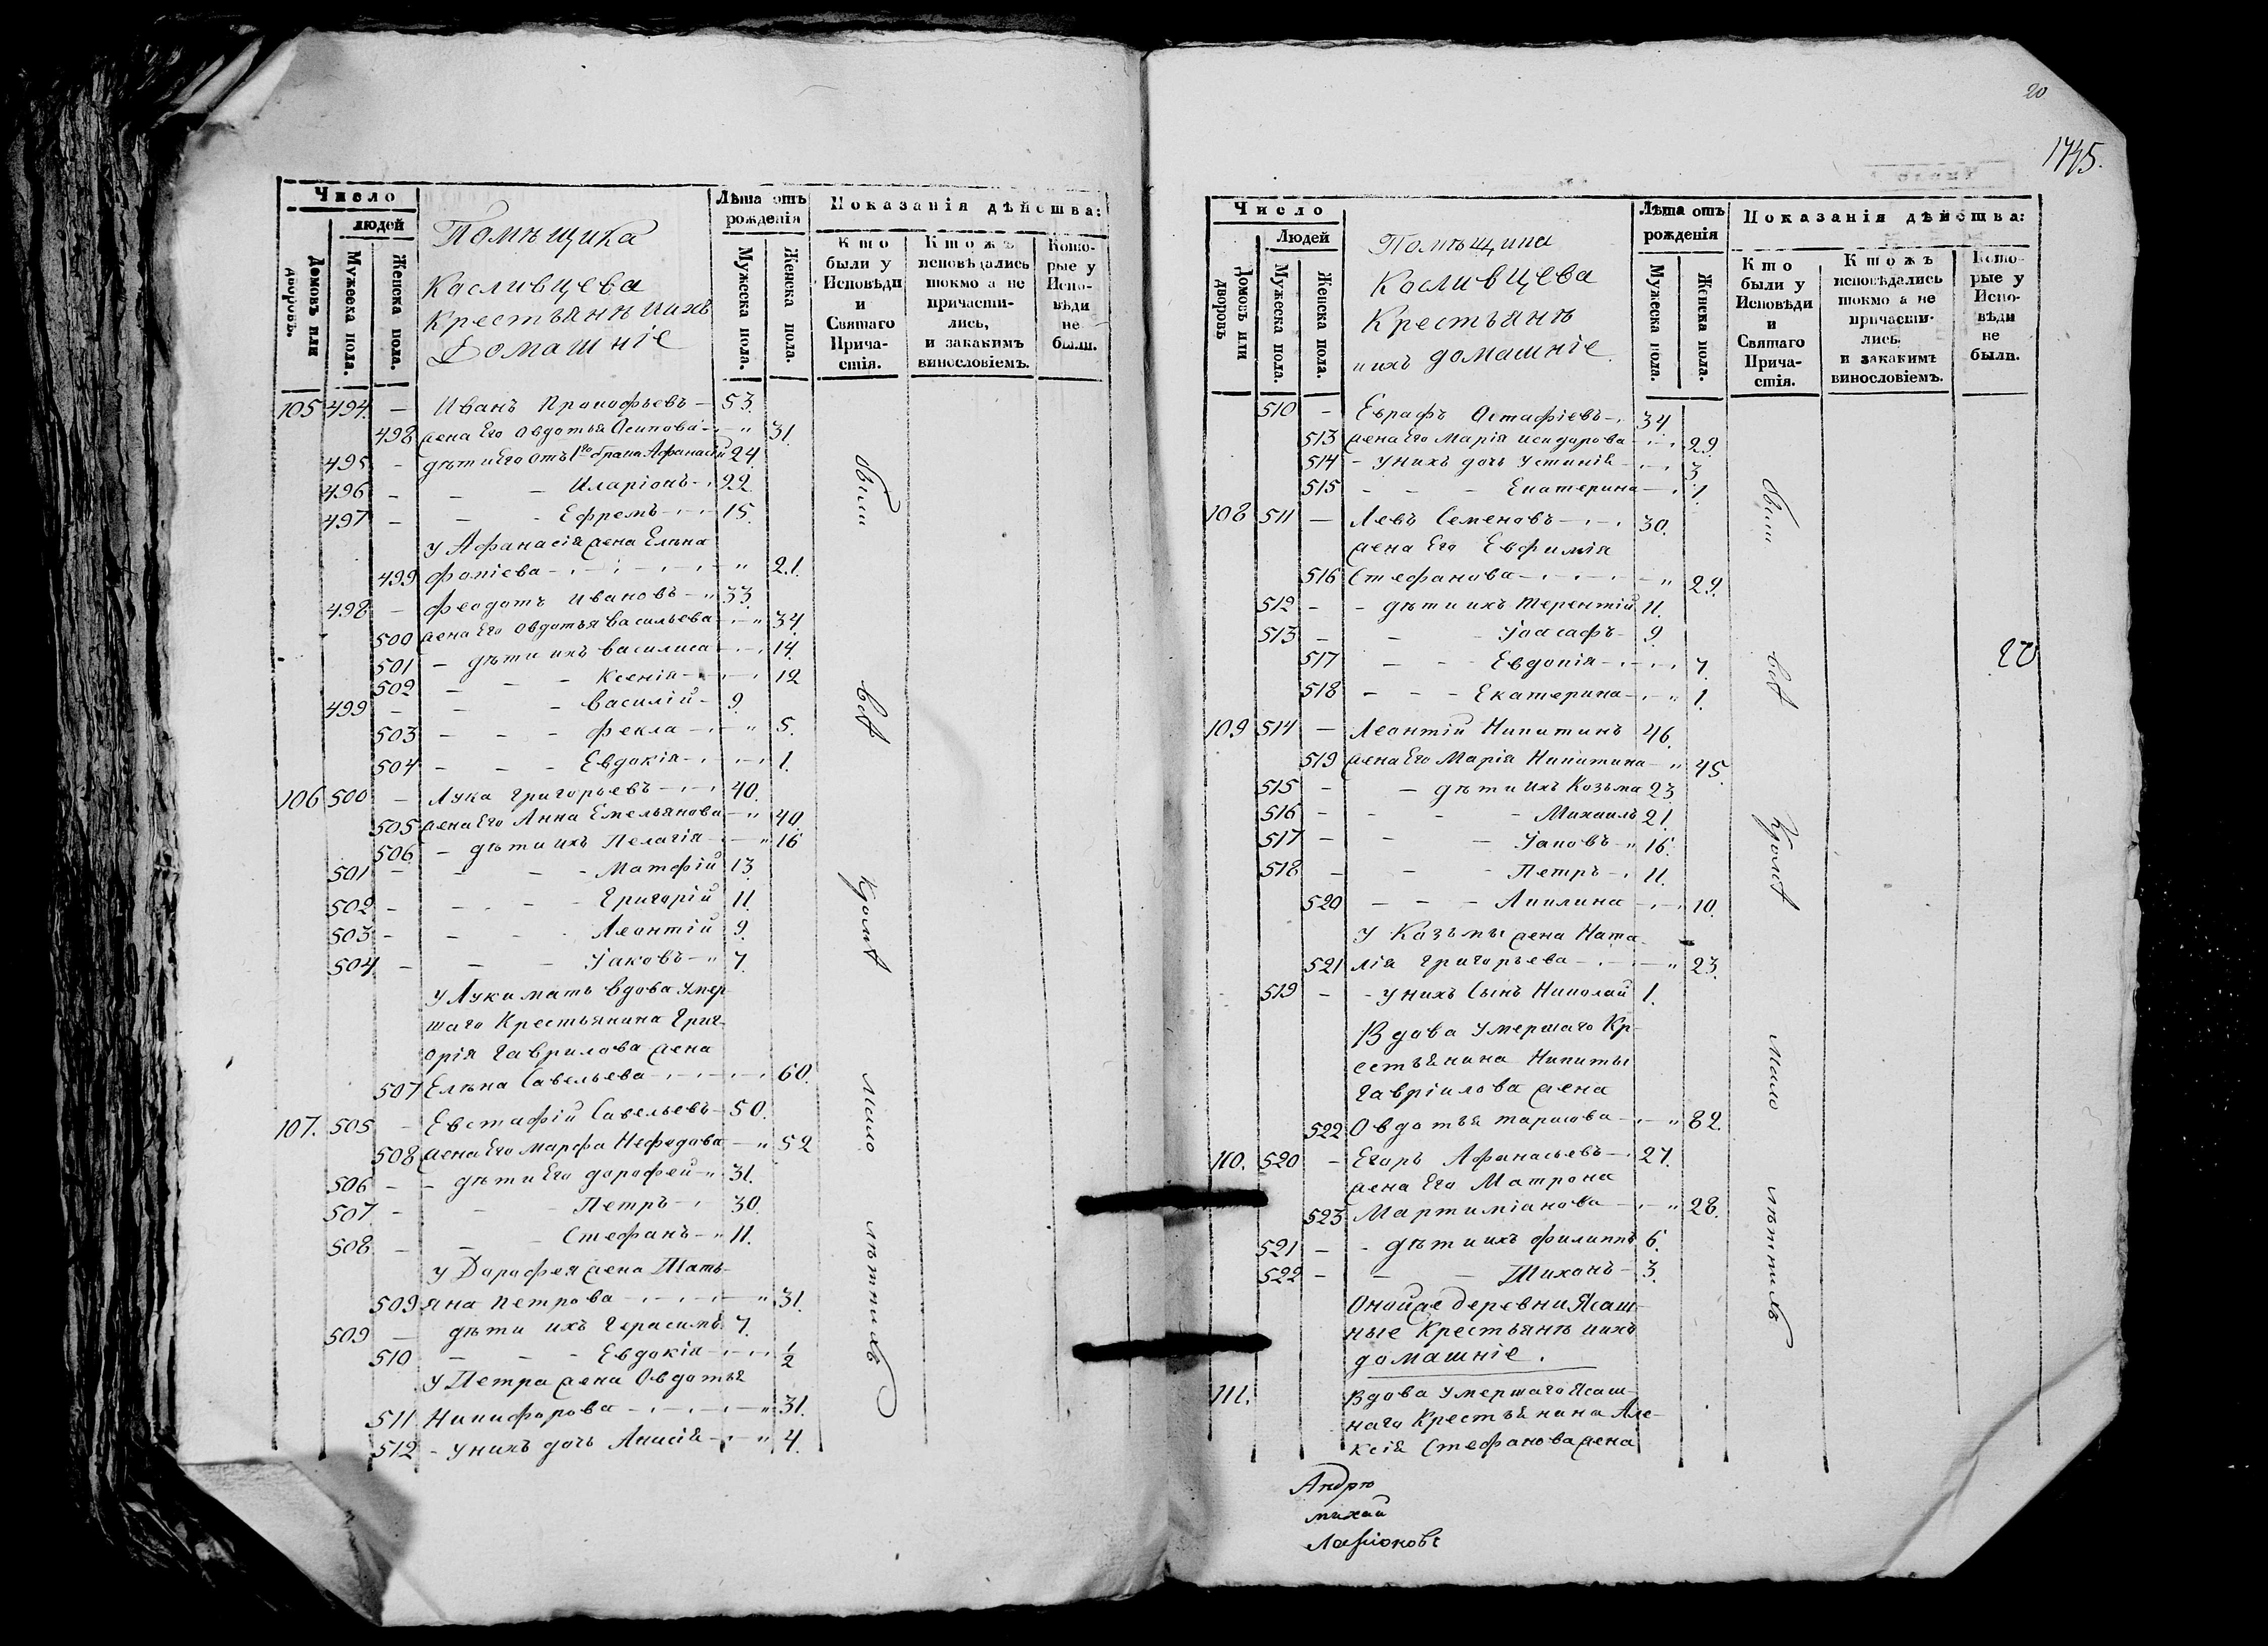 Число
людей
Домовъ или дворовъ.
Мужеска пола.
Женска пола.
Помѣщика
Касливцева
Крестьянѣ ихъ
Домашніе
Лѣта отъ рожденія
Мужеска пола.
Женска пола.
Показанія дѣйства:
Кто были у Исповѣди и Святаго Причастія.
Ктожъ исповѣдались токмо а не причастились, и закакимъ винословіемъ.
Которые у Исповѣди не были.
105 494. – Иванъ Прокофьевъ – 53.
498 жена Его Овдотья Осипова – " 31.
495 – дѣти Его отъ 1го брака Афанасій 24.
496 – – – Иларіонъ – 22.
497 – – Ефремъ – 15.
у Афанасія жена Елѣна
499 Фокіева – " 21.
498 – Феодотъ Ивановъ – " 33.
500 жена Его Овдотья Васильева – " 34.
501 – дѣти ихъ Василиса – 14.
502 – – – Ксенія – 12
499 – – – Василій – 9.
503 – – – Фекла – " 5.
504 – – – Евдокія – 1.
106 500 – Лука Григорьевъ – 40.
505 жена Его Анна Емельянова – " 40.
506 – дѣти ихъ Пелагія – " 16
501 – – – Матфій 13.
502 – – – Григорій 11.
503 – – – Леонтій 9.
504 – – – Іаковъ – " 7.
у Луки мать вдова умер-
шаго Крестьянина Григ-
орія Гаврилова жена
507 Елѣна Савельева – 60.
107. 505 – Евстафій Савельевъ – 50.
508 жена Его Марфа Нефедова – " 52
506 – – дѣти Его Дорофей – " 31.
507 – – – Петръ – 30.
508 – – – Стефанъ – " 11.
у Дорофея жена Тать-
509 яна Петрова – " 31.
509 – дѣти ихъ Герасимъ 7.
510 – – – Евдокія – 1/2
у Петра жена Овдотья
511 Никифорова – " 31.
512 – у нихъ дочь Анисія – " 4.
были всѣ Кромѣ мало лѣтнихъ
20
1745.
Число
Людей
Домовъ или дворовъ
Мужеска пола.
Женска пола.
Помѣщика
Касливцева
Крестьянѣ
ихъ домашніе.
Лѣта отъ рожденія
Мужеска пола.
Женска пола.
Показанія дѣйства:
Кто были у Исповѣди и Святаго Причастія.
Ктожъ исповѣдались токмо а не причастились. и закакимъ винословіемъ.
Которые у Исповѣди не были.
510 – Еврафъ Остафіевъ – 34.
513 жена Его Марія Исидорова – 29.
514 – у нихъ дочь Устинія – 3
515 – – – Екатерина – 1
108 511 – Левъ Семеновъ – 30.
жена Его Евфимія
516 Стефанова – " 29.
512 – – дѣти ихъ Терентій 11.
513 – – – Іоасафъ – 9.
517 – – – Евдокія – 7.
518 – – – Екатерина – " 1.
109 514 – Леонтій Никитинъ 46.
519 жена Его Марія Никитина – " 45.
515 – – дѣти ихъ Козьма 23
516 – – – Михаилъ 21.
517 – – – Іаковъ – " 16.
518 – – – Петръ – 11.
520 – – – Акилина – 10.
у Козьмы жена Ната-
521 лія Григорьева – " 23.
519 – – у нихъ Сынъ Николай 1.
Вдова умершаго Кр-
естьянина Никиты
Гавріилова жена
522 Овдотья Тарасова – " 82.
110. 520 – Егоръ Афанасьевъ – 27.
жена Его Матрона
523 Мартиміанова – " 28.
521 – – дѣти ихъ Филиппъ 6.
522 – – – Тихонъ – 3.
Онойже деревни Ясаш-
ные Крестьянѣ ихъ
домашніе.
111. Вдова умершаго Ясаш-
наго Крестьянина Але-
ксія Стефанова жена
были всѣ Кромѣ мало лѣтнихъ
20
Андрю
михай
Ларіоновъ